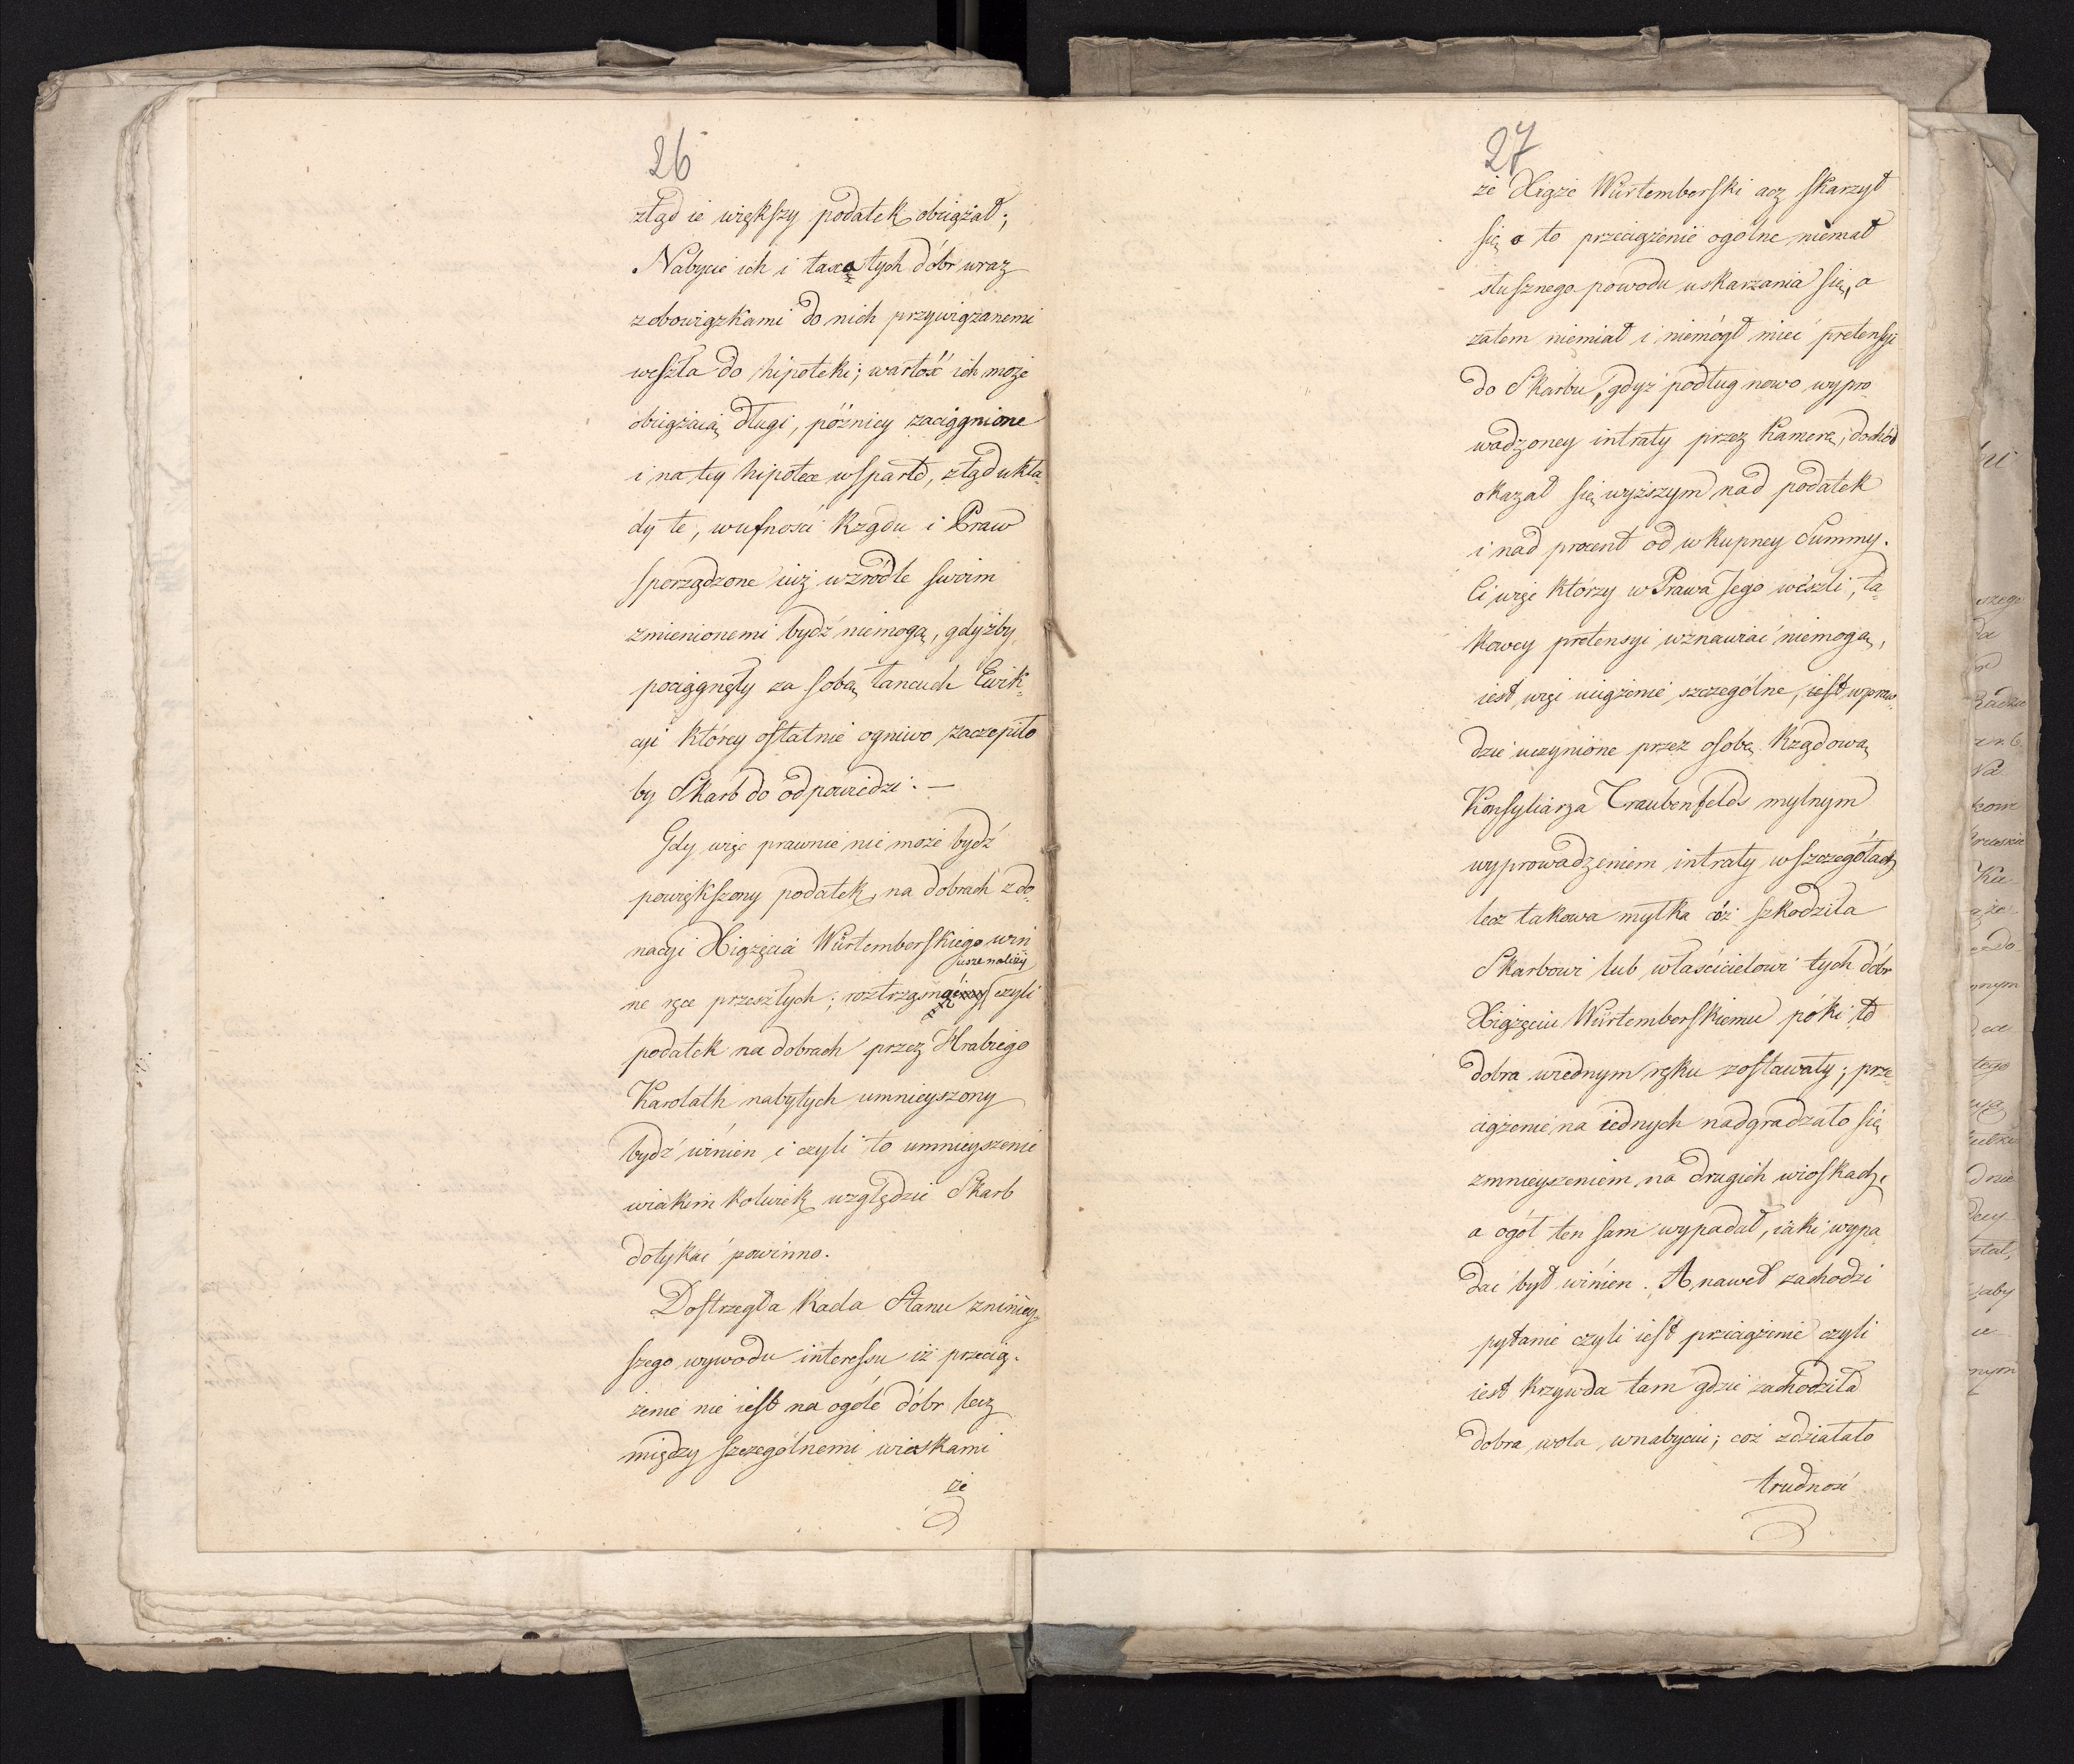 26
ztąd ie większy podatek obciążał;
Nabycie ich i taxa tych dóbr wraz
z obowiązkami do nich przywiązanemi
weszła do hipoteki; wartość ich może
obciążaią długi, późniey zaciągnione
i na tey hipotece wsparte, ztąd ukła-
dy te, w ufności Rządu i Praw
sporządzone iuż w zrodle swoim
zmienionemi bydź niemogą, gdyżby
pociągnęły za sobą łancuch Ewik-
cyi którey ostatnie ogniwo zaczepiło
by Skarb do odpowiedzi. —
Gdy więc prawnie nie może bydź
powiększony podatek, na dobrach z do-
nacyi Xiążęcia Würtemberskiego w in-
ne ręce przeszłych; roztrząsnąć ieszcze należy czyli
podatek na dobrach przez Hrabiego
Karolath nabytych umnieyszony
bydź winien i czyli to umnieyszenie
w iakim kolwiek względzie Skarb
dotykać powinno.
Dostrzegła Rada Stanu z niniey-
szego wywodu interessu iż przecią-
żenie nie iest na ogóle dóbr lecz
między szczególnemi wioskami
że
27
że Xiąże Würtemberski acz skarzył
się o to przeciążenie ogolne niemał
słusznego powodu uskarzania się, a
zatem niemiał i niemógł mieć pretensyi
do Skarbu, gdyż podług nowo wypro-
wadzoney intraty przez Kamerę, dochód
okazał się wyższym nad podatek
i nad procent od wkupney Summy.
Ci więc którzy w Prawa Jego weszli, ta-
kowey pretensyi wznawiać niemogą,
iest więc uciążenie szczególne, iest wpraw-
dzie uczynione przez osobę Rządową
Konsyliarza Traubenfelds mylnym
wyprowadzeniem intraty w szczegółach
lecz takowa myłka cóż szkodziła
Skarbowi lub właścicielowi tych dóbr
Xiążęciu Würtemberskiemu póki te
dobra w iednym ręku zostawały; prze-
ciążenie na iednych nadgradzało się
zmnieyszeniem na drugich wioskach,
a ogół ten sam wypadał, iaki wypa-
dać był winien. A nawet zachodzi
pytanie czyli iest przeciążenie czyli
iest krzywda tam gdzie zachodziła
dobra wola w nabyciu; coż zdziałało
trudność